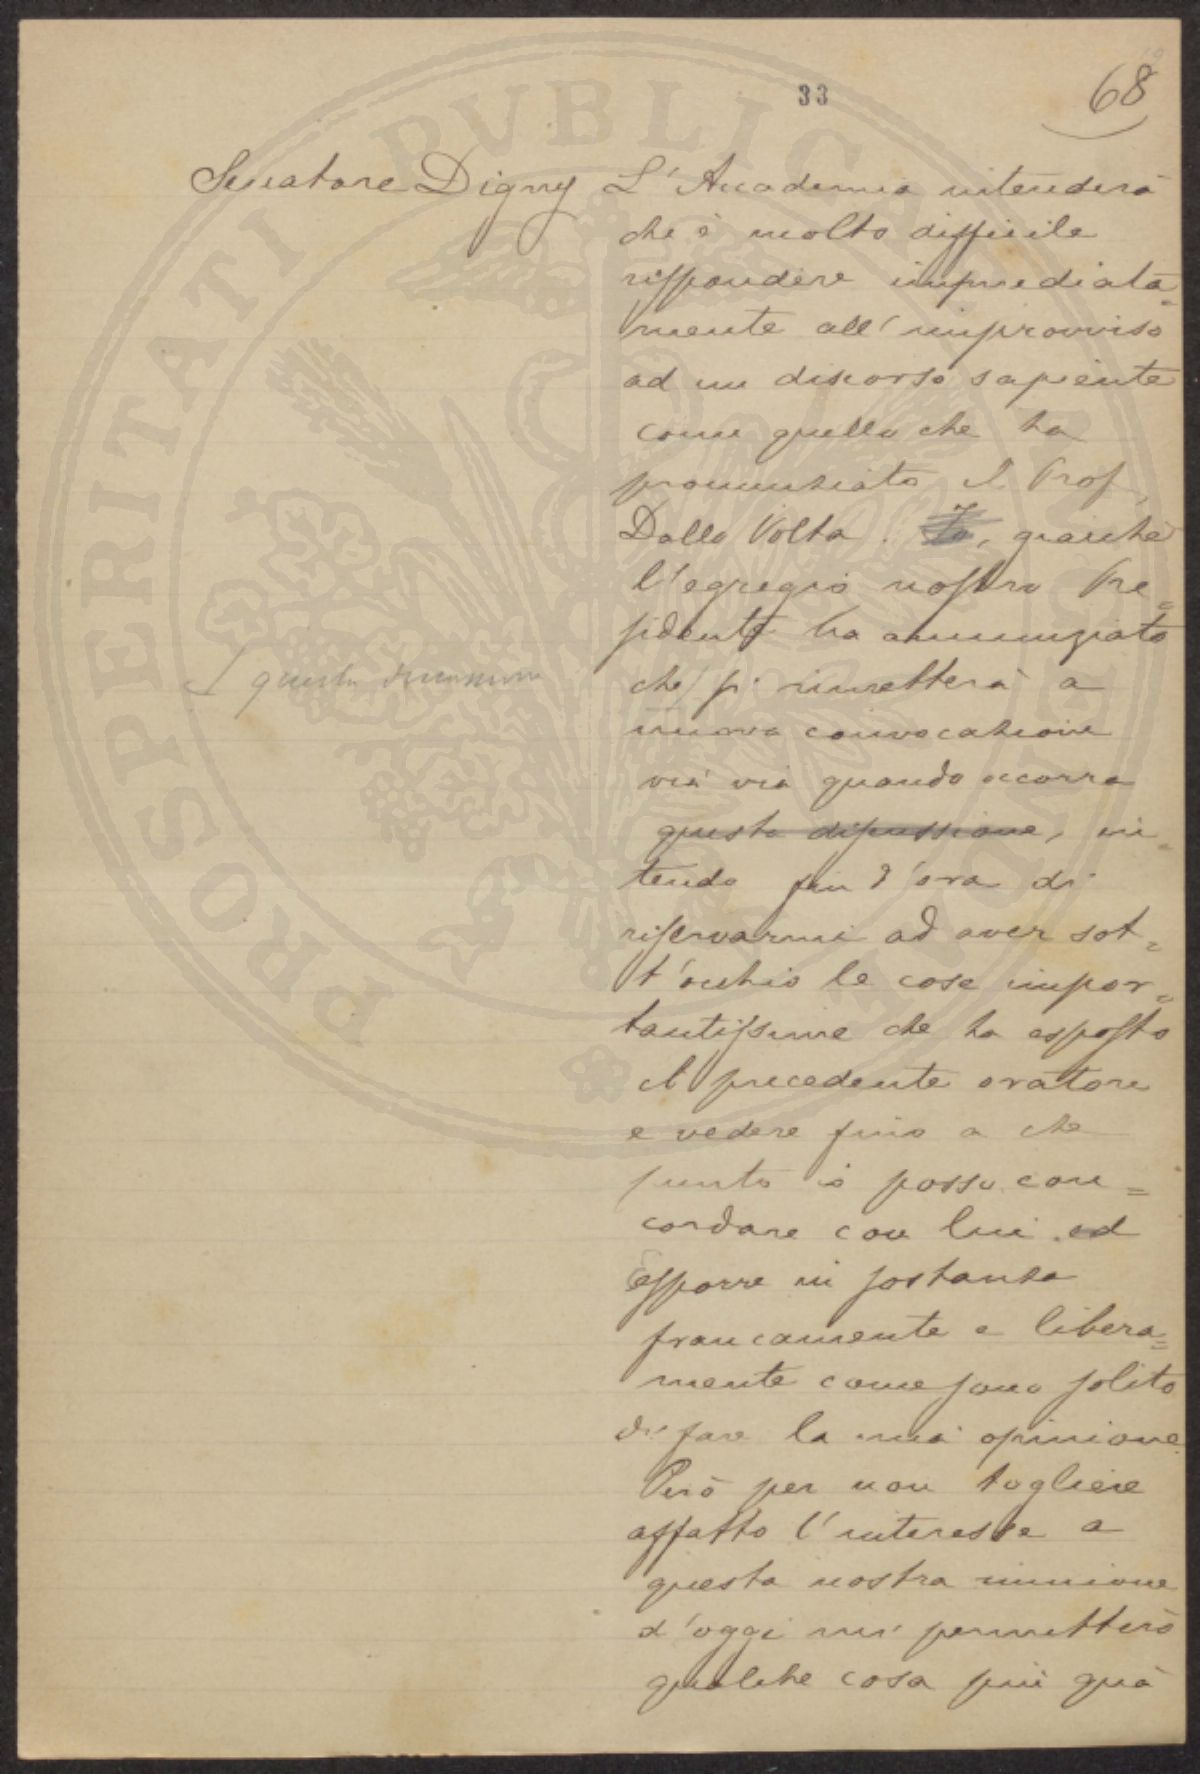 33
68
Senatore Digny L'Accademia intenderà
che è molto difficile
rispondere immediata=
mente all'improvviso
ad un discorso sapiente
come quello che ha
pronunziato il Prof.
Dalla Volta. Io, giacchè
l'egregio nostro Pre=
sidente ha annunziato
questa discussione
che si rimetterà a
nuova convocazione
via via quando occorra
questa discussione, in=
tendo fin d'ora di
riservarmi ad aver sot=
t'occhio le cose impor=
tantissime che ha esposto
il precedente oratore
e vedere fino a che
punto io posso con=
cordare con lui ed
Esporre in sostanza
francamente e libera=
mente come sono solito
di fare la mia opinione.
Però per non togliere
affatto l'interesse a
questa nostra riunione
d'oggi mi permetterò
qualche cosa più quà
PROSPERITATI PVBLICAE AVGENDAE